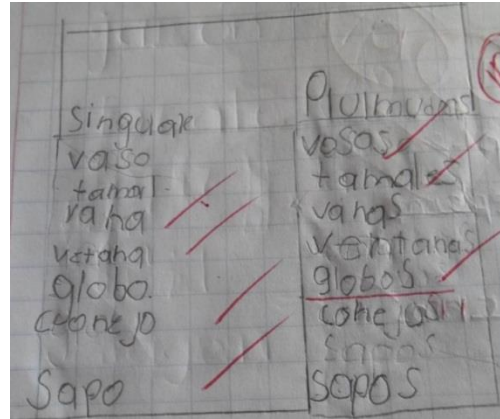 Singuale
vaso
tamal
rana
vetana
globo
cuonejo
Sapo
vosas
tamales
vanas
ventanas
globos
conejos
sapos
sopos